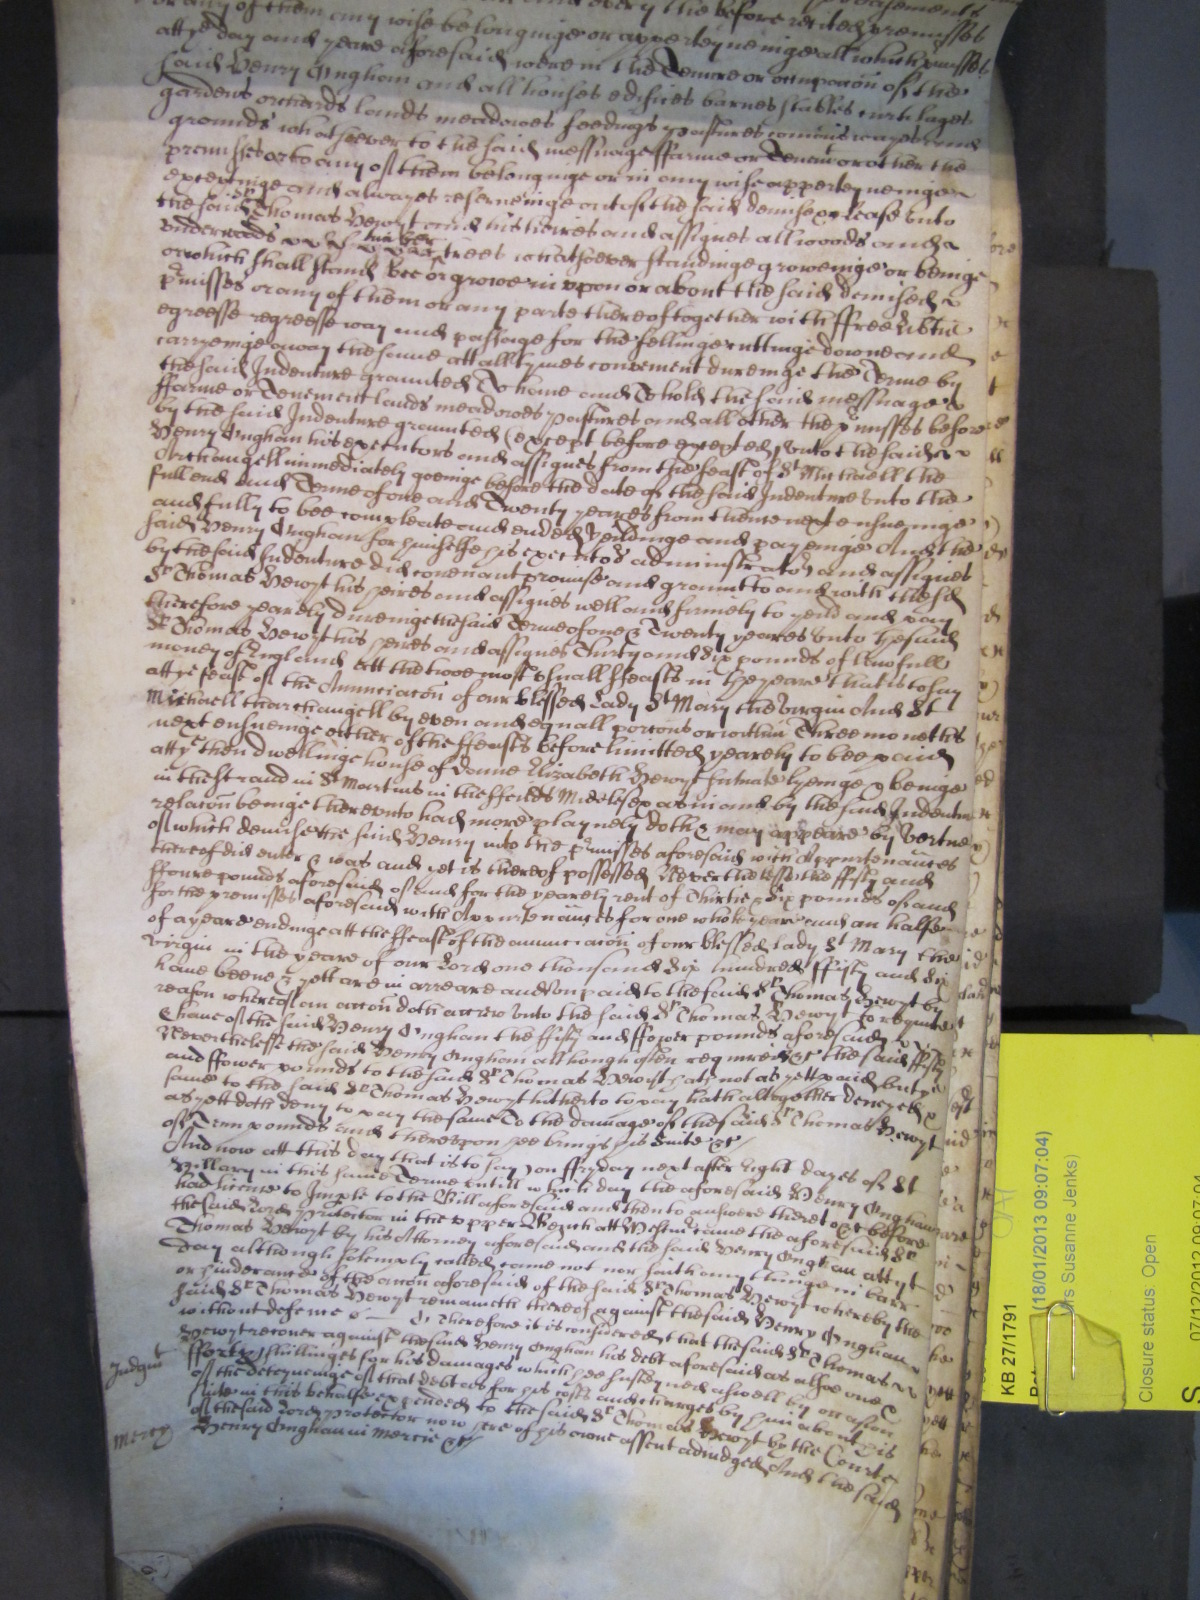 or any of them any wise belonginge or apperteyneinge all which premisses
att ye day and yeare aforesaid were in the Tenure or occupacon of the
said Henry Ingham and all houses edifices barnes stables curtilages
gardens orchards lands meadowes feedings pastures comons wayes and
grounds whatsoever to the said messuage ffarme or Tenemt or other the
premisses or to any of them belonginge or in any wise apperteyneinge
exceptinge and alwayes reserveinge out of the said demise & lease unto
the said Sr Thomas Hewyt and his heires and assignes all woods and
underwoods timber trees whatsoever standinge groweinge or beinge
or which shall stand bee or growe in upon or about the said demised
pmisses or any of them or any parte thereof together with ffree libtie
egresse regresse way and passage for the fellinge cuttinge downe and
carryeinge away the same att all tymes convenient dureinge the Terme by
the said Indenture graunted To have and To hold the said messuage
ffarme or Tenement lands meadowes pastures and all other the pmisses before
by the said Indenture graunted (except before excepted) unto the said
Henry Ingham his executors and assignes from the feast of St Michaell the
Archangell immediately goeinge before the date of the said Indenture unto the
full end and Terme of one and Twenty yeares from thence next ensueinge
and fully to bee compleate and ended yeildinge and payeinge And the
said Henry Ingham for himselfe his executors administrators and assignes
by the said Indenture did covenant promise and graunt to and with the sd
Sr Thomas Hewyt his heires and assignes well and firmely to yeild and pay
therefore yearely dureinge the said Terme of one & Twenty yeares unto the said
Sr Thomas Hewyt his heires and assignes Thirty and six pounds of lawfull
money of England att the twoe most usuall ffeasts in the yeare that is to say
att ye feast of the Annunciacon of our blessed Lady St Mary the virgin And St
Michaell tharchangell by even and equall porcons or within Three moneths
next ensueinge either of the ffeasts before limitted yearely to bee paid
att ye then dwellinge house of Dame Elizabeth Hewyt scituate lyeinge & beinge
in the Strand in St Martins in the ffeilds Middlesex as in and by the said Indenture
relacon beinge thereunto had more playnely doth & may appeare by vertue
of which demise the said Henry into the pmisses aforesaid with Appurtenances
thereof did enter & was and yet is thereof possessed Neverthelesse the ffifty and
ffoure pounds aforesaid of and for the yearely rent of Thirtie & six pounds of and
for the premisses aforesaid with Appurtenances for one whole yeare and an halfe
of a yeare endinge att the ffeast of the annunciacon of our blessed Lady St Mary the
virgin in the yeare of our Lord one thousand six hundred ffifty and six
have beene & yett are in arreare and unpaid to the said Sr Thomas Hewyt by
reason whereof an accon doth accrew unto the said Sr Thomas Hewyt to require
& have of the said Henry Ingham the ffifty and ffower pounds aforesaid
Neverthelesse the said Henry Ingham although often required &c the said ffifty
and ffower pounds to the said Sr Thomas Hewyt hath not as yett paid but ye
same to the said Sr Thomas Hewyt hitherto to pay hath altogether denyed &
as yett doth deny to pay the same To the damage of the said Sr Thomas Hewyt
of Tenn pounds and thereupon hee brings his suite &c
And now att this day that is to say on ffryday next after Eight dayes of St
Hillary in this same Terme untill which day the aforesaid Henry Ingham
had licence to Imple to the Bill aforesaid and then to answere thereto &c before
the said Lord Protector in the Upper Bench att Westmr came the aforesaid Sr
Thomas Hewyt by his Attorney aforesaid and the said Henry Ingham att yt
day although solemply called came not nor saith any thinge in barr
or hinderance of the accon aforesaid of the said Sr Thomas Hewyt whereby the
said Sr Thomas Hewyt remaineth thereof against the said Henry Ingham
without defence &c Therefore it is considered that the said Sr Thomas
Judgmt
Hewyt recover against the said Henry Ingham his debt aforesaid as alsoe one &
fforty shillinges for his damages which hee susteyned aswell by occasion
of the deteyneinge of that debt as for his costs and charges by him about his
suite in this behalfe expended to the said Sr Thomas Hewyt by the Courte
of the said Lord Protector now here of his owne assent adiudged And the said
mercy
Henry Ingham in mercie &c
KB 27/1791
(18/01/2013 09:07:04)
Susanne Jenks)
Closure status Open
07/12/2012 09:07:04